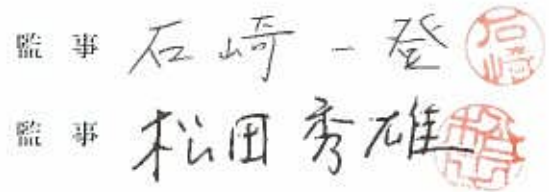 監事 石崎一登 石崎
監事 松田秀雄